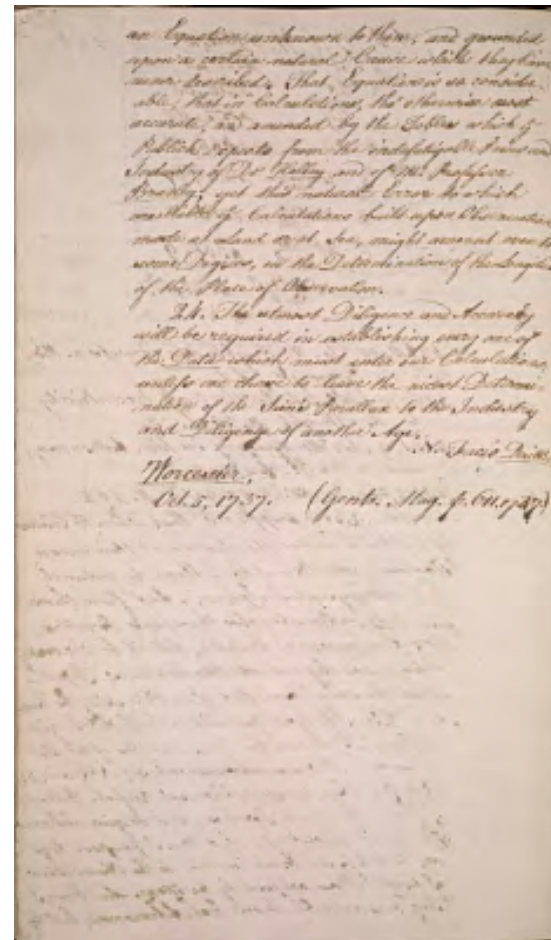 an Equation unknown to them, and grounded
upon a certain natural Cause which they have
never described. That Equation is so consider-
able, that in Calculations, tho' otherwise most
accurate, and amended by the Tables which ye
Publick expects from the indefatigable Pains and
Industry of Dr Halley and of Mr Professor
Bradley; yet that natural Error to which
are Calculations built upon Observations
made at Land or at Sea, might amount even to
some Degrees, in the Determination of the Longitude
of the Place of Observation.
24. The utmost Diligence and Accuracy
will be required in establishing every one of
the Data which must enter our Calculations,
unless we chuse to leave the nicest Determi-
nation of the Sun's Parallax to the Industry
and Diligence of another Age.
Worcester,
Oct. 5, 1737. (Gentn. Mag. p. 611. 1737)